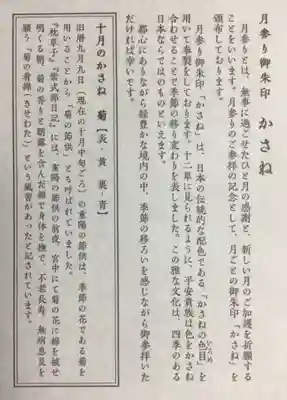 月参り御朱印 かさね
月参りとは、無事に過ごせたひと月の感謝と、新しい月のご加護を祈願する
ことをいいます。月参りのご参拝の記念として、月ごとの御朱印「かさね」を
頒布しております。
月参り御朱印「かさね」は、日本の伝統的な配色である「かさねの色目」を
用いて奉製をしております。十二単に見られるように、平安貴族は色をかさね
合わせることで季節の移り変わりを表しました。この雅な文化は、四季のある
日本ならではのものといえます。
都心にありながら緑豊かな境内の中、季節の移ろいを感じながら御参拝いた
だければ幸いです。
十月のかさね 菊【表・黄 裏・青】
旧暦九月九日(現在の十月中旬ごろ)の重陽の節供は、季節の花である菊を
用いることから「菊の節供」とも呼ばれていました。
『枕草子』『紫式部日記』には、重陽の節供の前夜、宮中にて菊の花に綿を被せ
明くる朝、菊の香りと朝露を含んだ綿で身体を撫で、不老長寿、無病息災を
願う「菊の着綿(きせわた)」という風習があったと記されています。